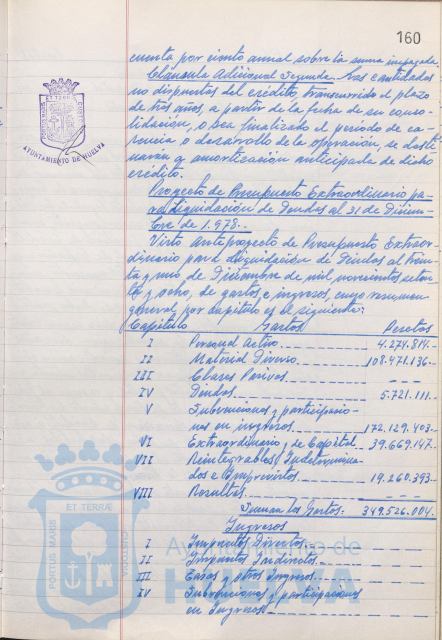 160
cuenta por ciento anual sobre la suma impagada.
Clausula Adicional Segunda.- Las cantidades
no dispuestas del crédito transcurrido el plazo
de tres años, a partir de la fecha de su conso-
lidación, o sea finalizado el periodo de ca-
rencia o desarrollo de la operación, se desti-
narán a amortización anticipada de dicho
crédito.
Proyecto de Presupuesto Extraordinario pa-
ra Liquidación de Deudas al 31 de Diciem-
bre de 1.978.-
Visto anteproyecto de Presupuesto Extraor-
dinario para Liquidación de Deudas al trein-
ta y uno de Diciembre de mil novecientos seten-
ta y ocho, de gastos e ingresos, cuyo resumen
general por capitulo es el siguiente:
Capítulo Gastos Pesetas
I Personal Activo 4.274.814.-
II Material Diverso 108.471.136.-
III Clases Pasivas - - -
IV Deudas 5.721.111.-
V Subvenciones y participacio-
nes en ingresos 172.129.403.-
VI Extraordinario y de Capital 39.669.147.-
VII Reintegrables, Indetermina-
dos e Imprevistos 19.260.393.-
VIII Resultas - - -
Suman los Gastos: 349.526.004.-
Ingresos
I Impuestos Directos - - -
II Impuestos Indirectos - - -
III Tasas y otros Ingresos - - -
IV Subvenciones y participaciones
en Ingresos - - -
AYUNTAMIENTO DE HUELVA
PORTUS MARIS ET TERRAE CUSTODIA
Ayuntamiento de